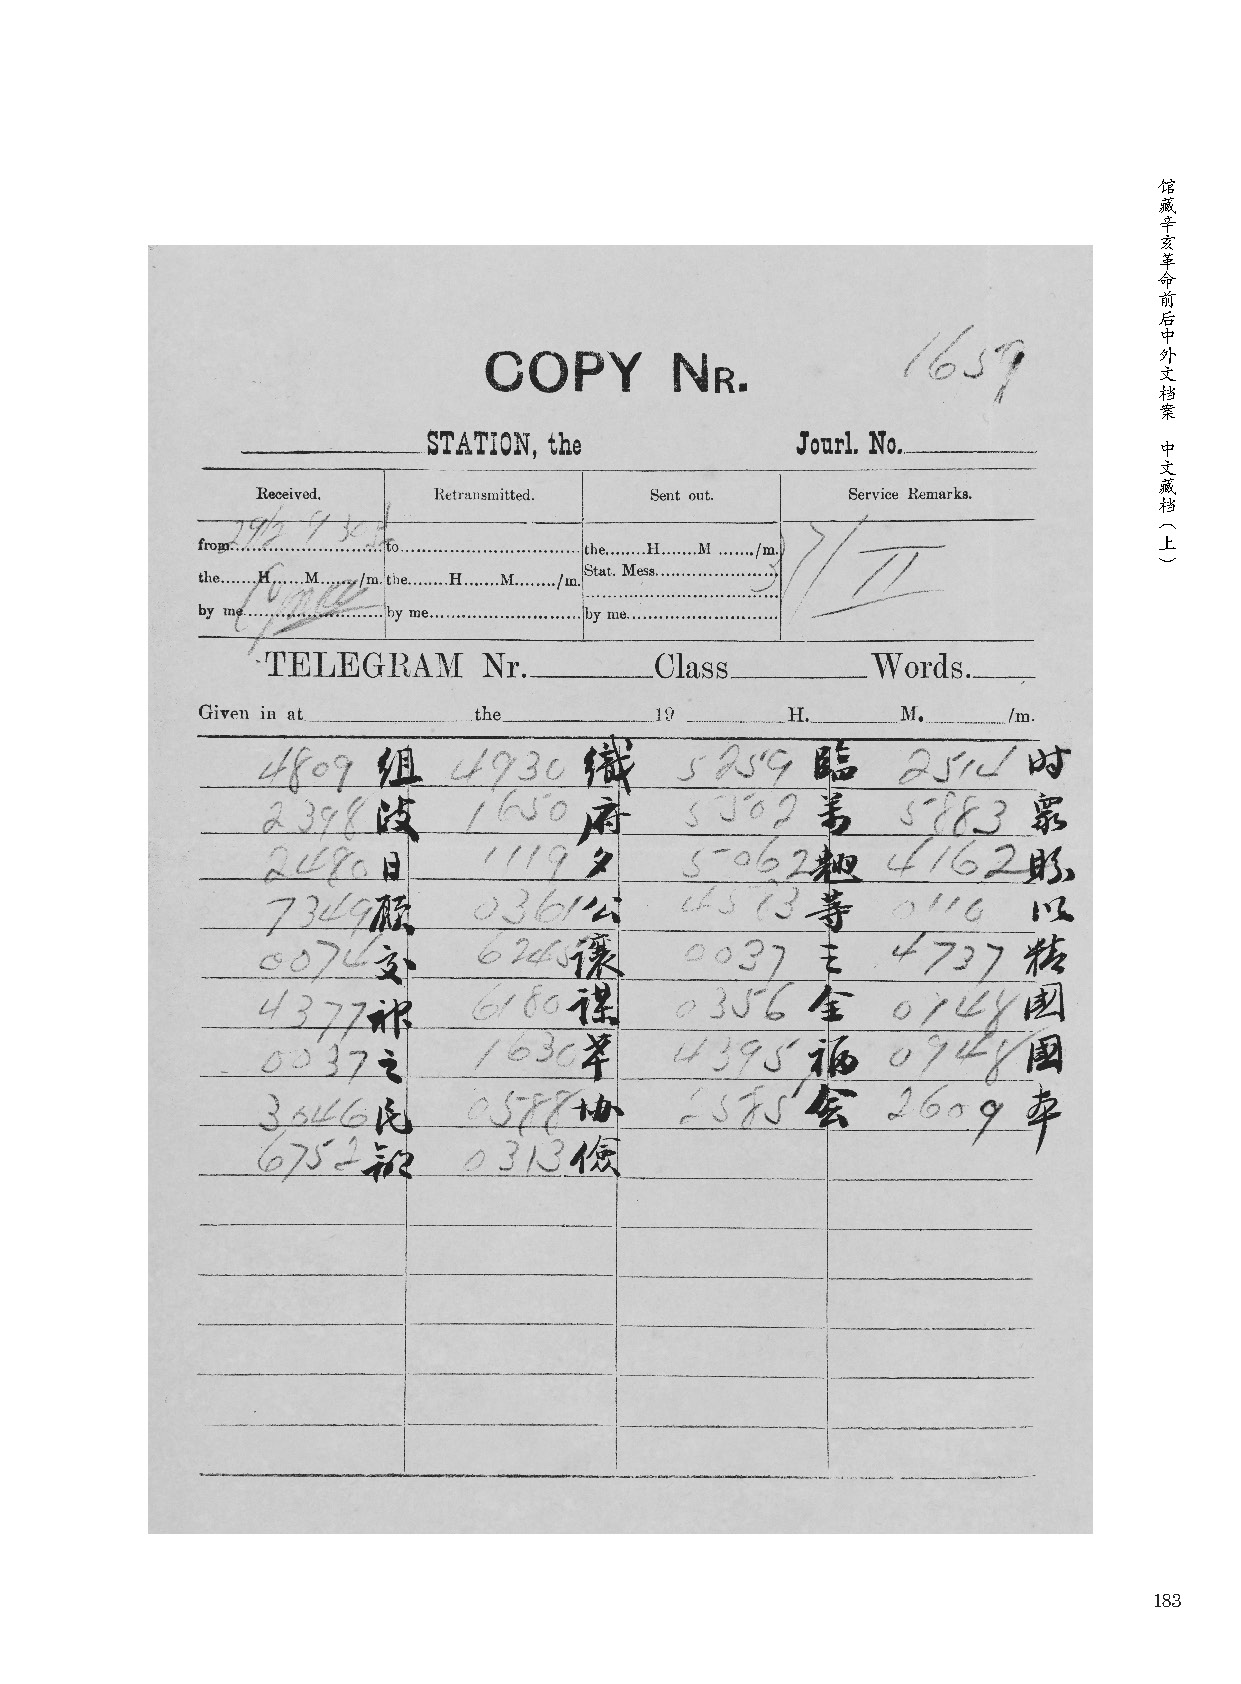 馆藏辛亥革命前后中外文档案 中文藏档（上）
COPY NR. 1659
STATION, the Jourl. No.
Received. Retransmitted. Sent out. Service Remarks.
from to the H M /m.
the H M /m. the H M /m. Stat. Mess
by me by me by me
II
TELEGRAM Nr. Class Words.
Given in at the 19 H. M. /m.
4809 組 4930 織 5259 臨 2514 时
2398 政 1650 府 5502 萬 5883 衆
2480 日 1119 夕 5062 翹 4162 盼
7349 願 0361 公 4573 等 0110 以
0074 交 6245 讓 0037 之 4737 精
4377 神 6180 謀 0356 全 0948 國
0037 之 1630 幸 4395 福 0948 國
3046 民 0588 协 2585 会 2609 本
6752 部 0313 儉
183